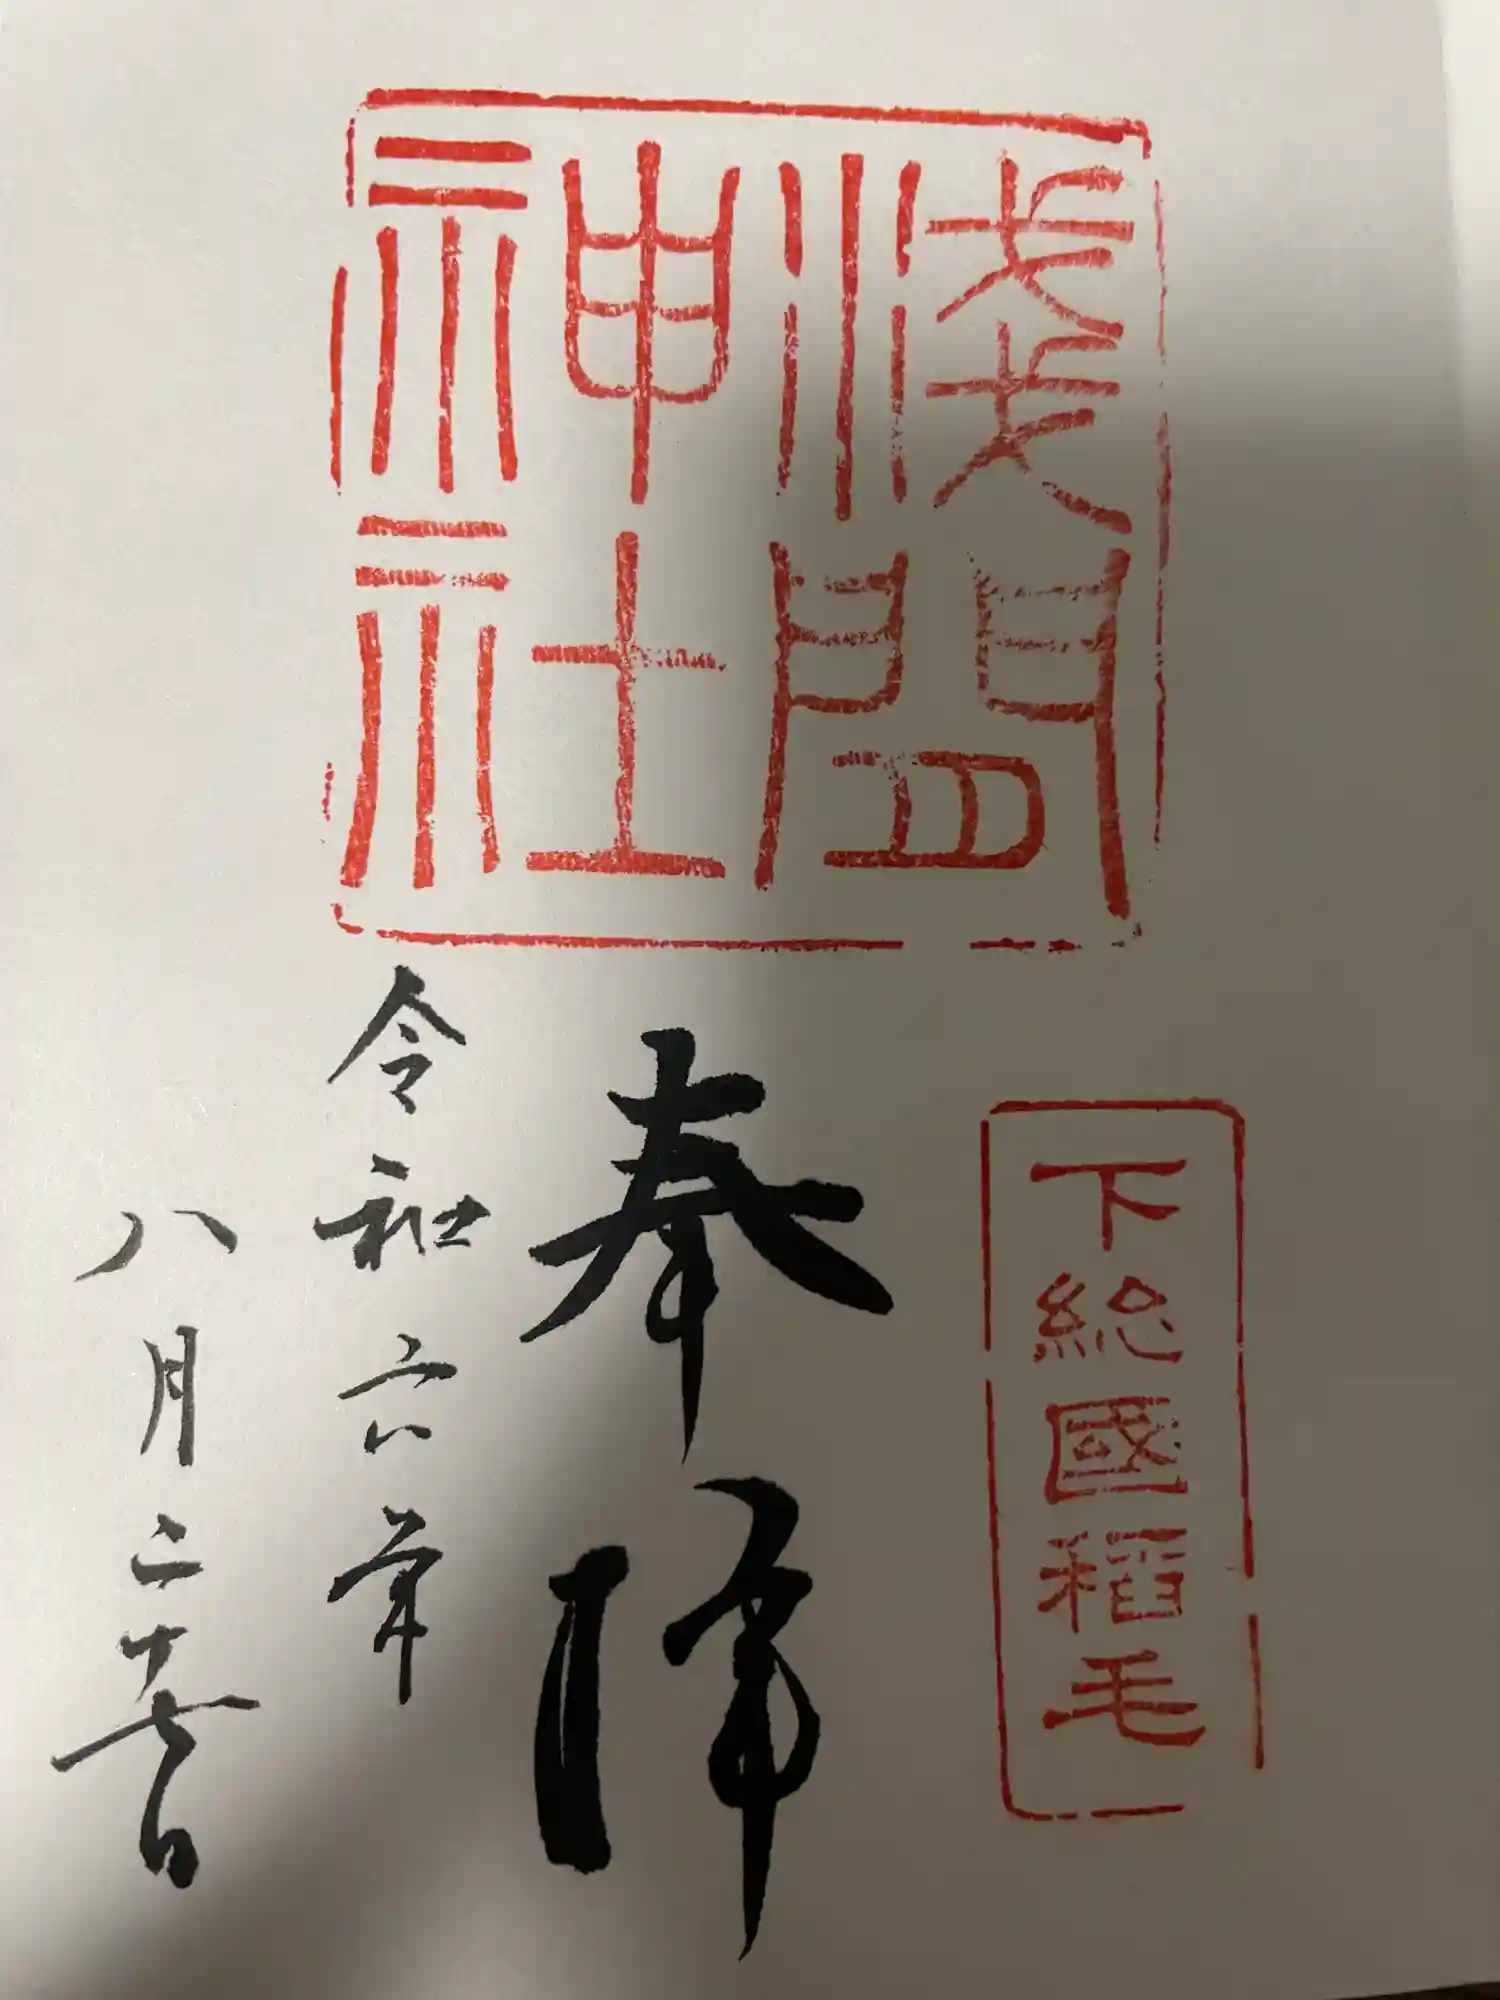 淺間
神社
下総國稻毛
奉拝
令和六年
八月二十七日